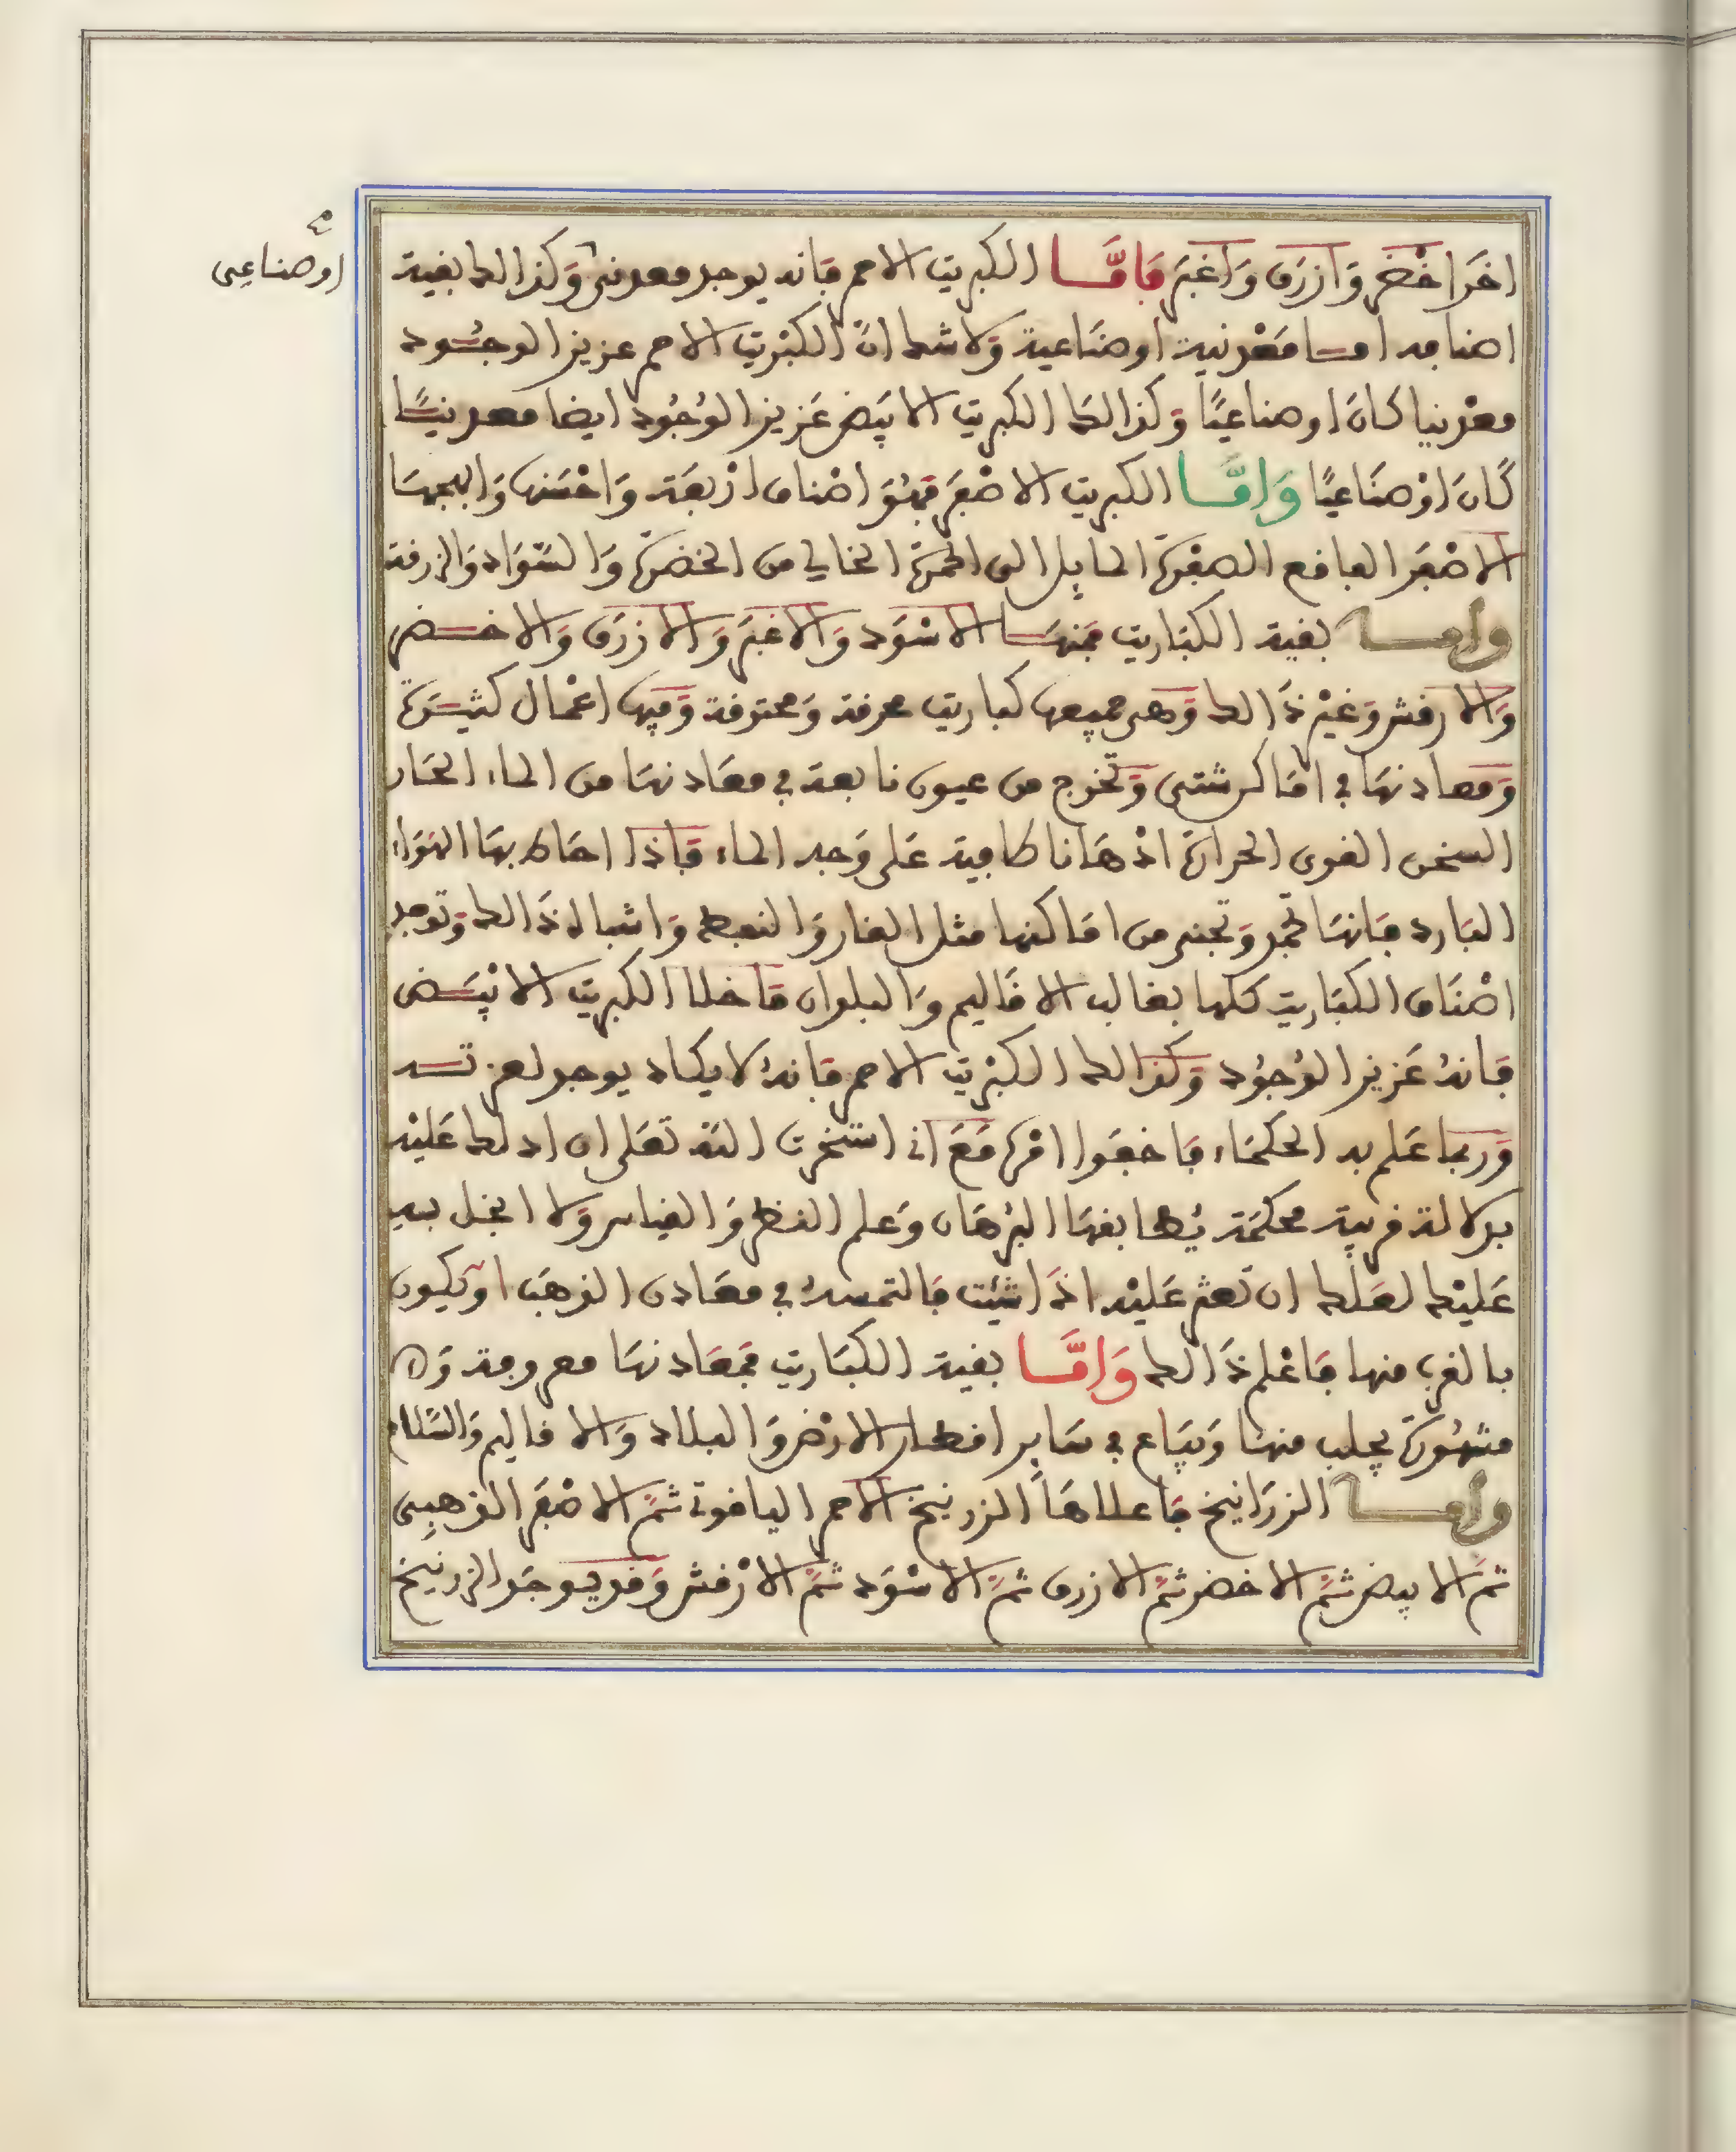 اخر اخضر وازرق واغبر فاما الكبريت الاحمر فانه يوجد معدني وكذالك بقية
او صناعي
اصنافه اما معدنية او صناعية ولا شك ان الكبريت الاحمر عزيز الوجود
معدنيا كان او صناعيا وكذالك الكبريت الابيض عزيز الوجود ايضا معدنيا
كان او صناعيا واما الكبريت الاصفر فهو اصناف اربعة واحسنها وابهجها
الاصفر الفاقع الصفرة المايل الى الحمرة الخالي من الخضرة والسواد والزرقة
واما بقية الكباريت فمنها الاسود والاغبر والازرق والاخضر
والارقش وغير ذالك وهي جميعها كباريت محرقة ومحترقة وفيها اعمال كثيرة
ومعادنها في اماكن شتى وتخرج من عيون نابعة في معادنها من الماء الحار
السخن القوي الحرارة ادهانا طافية على وجه الماء فاذا احاط بها الهواء
البارد فانها تجمد وتجنى من اماكنها مثل القار والنفط واشباه ذالك وتوجد
اصناف الكباريت كلها بغالب الاقاليم والبلدان ما خلا الكبريت الابيض
فانه عزيز الوجود وكذالك الكبريت الاحمر فانه لا يكاد يوجد لعزته
وربما علم به الحكماء فاخفوا امره مع اني استخرت الله تعلى ان ادلك عليه
بدلالة قريبة محكمة يطابقها البرهان وعلم النظر والقياس ولا ابخل به
عليك لعلك ان تعثر عليه اذا شئت فالتمسه في معادن الذهب او يكون
بالقرب منها فاعلم ذالك واما بقية الكباريت فمعادنها معروفة و
مشهورة يجلب منها ويباع في ساير اقطار الارض والبلاد والاقاليم والسلام
واما الزرانيخ فاعلاها الزرنيخ الاحمر الياقوتي ثم الاصفر الذهبي
ثم الابيض ثم الاخضر ثم الازرق ثم الاسود ثم الارقش وقد يوجد الزرنيخ